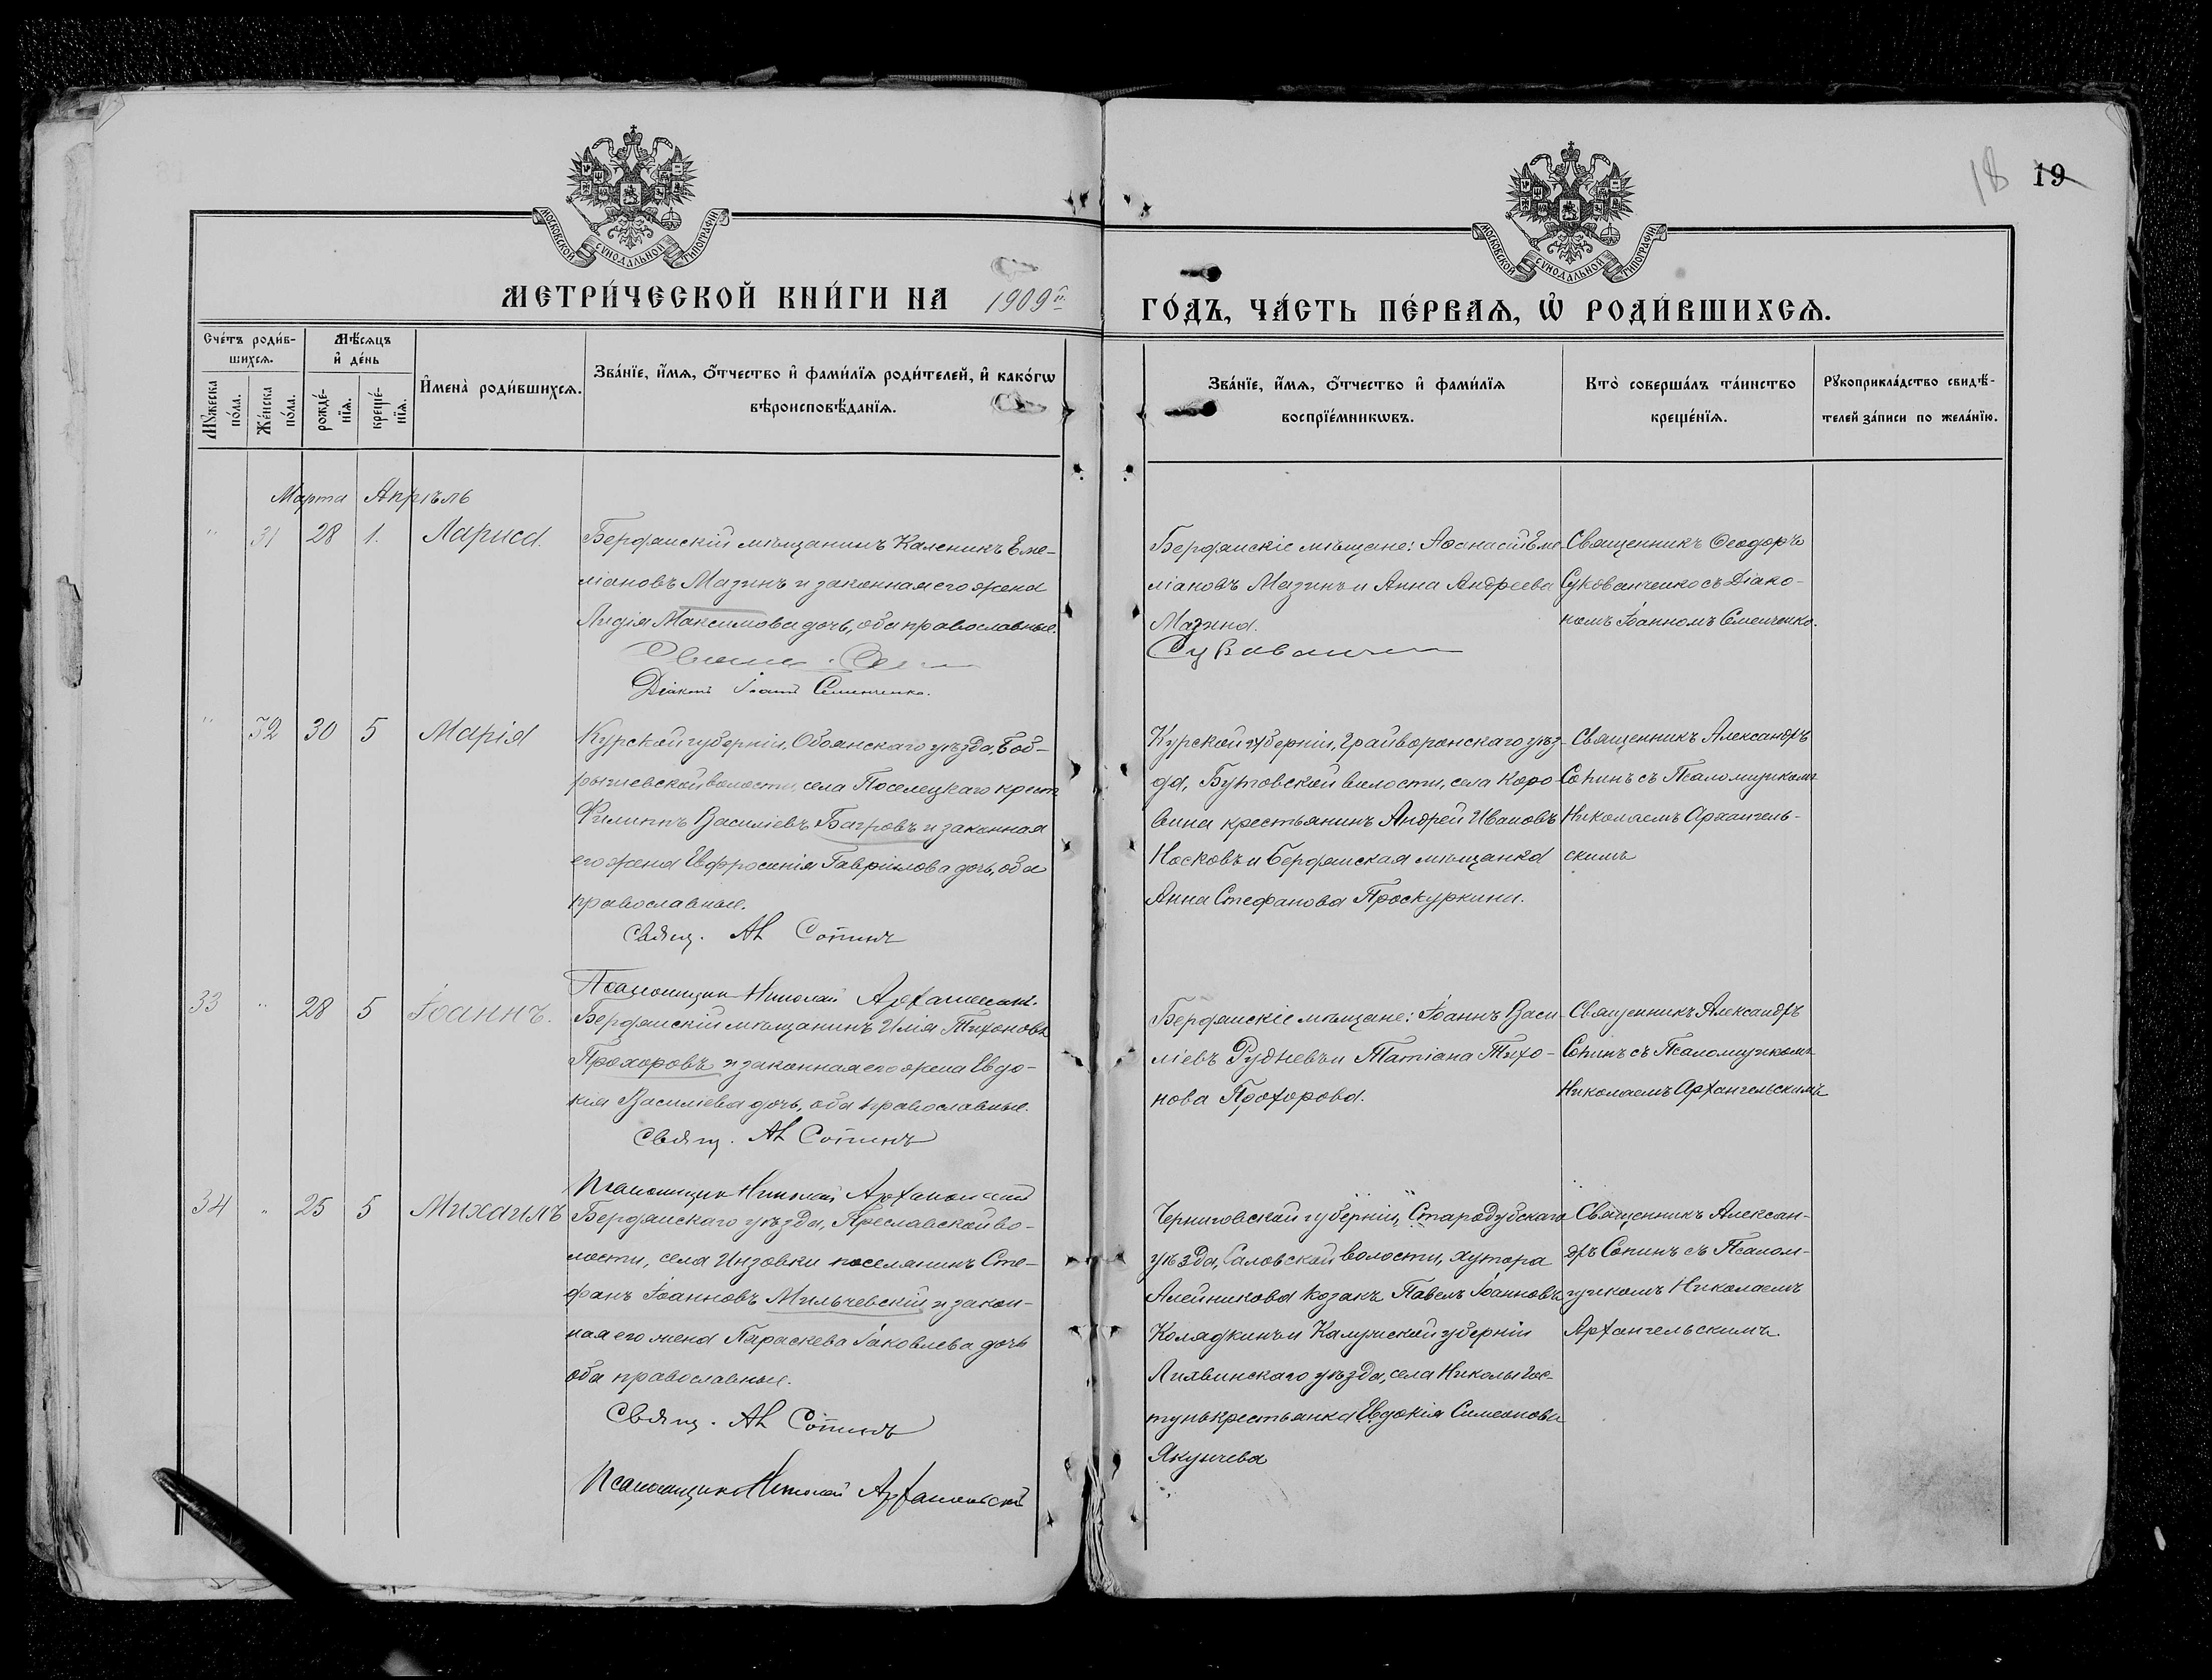 18 19
МОСКОВСКОЙ СѴНОДАЛЬНОЙ ТИПОГРАФІИ
МОСКОВСКОЙ СѴНОДАЛЬНОЙ ТИПОГРАФІИ
МЕТРИ́ЧЕСКОЙ КНИ́ГИ НА 1909й
ГО́ДЪ, ЧА́СТЬ ПЕ́РВАѦ, Ѡ҆ РОДИ́ВШИХСѦ.
Сче́тъ роди́в-
шихсѧ.
Мꙋ́жеска
по́ла.
Же́нска
по́ла.
Мѣ́сѧцъ
и҆ де́нь
рожде́-
нїѧ.
креще́-
нїѧ.
И҆мена̀ роди́вшихсѧ.
Зва́нїе, и҆́мѧ, ѻ҆́тчество и҆ фами́лїѧ роди́телей, и҆ како́гѡ
вѣроисповѣ́данїѧ.
Зва́нїе, и҆́мѧ, ѻ҆́тчество и҆ фами́лїѧ
воспрїе́мникѡвъ.
Кто̀ соверша́лъ та́инство
креще́нїѧ.
Рꙋкоприкла́дство свидѣ́-
телей за́писи по жела́нїю.
Марта Апрѣль
" 31 28 1. Лариса.
Бердянскій мѣщанинъ Каленикъ Еме-
ліановъ Мазинъ и законная его жена
Лидія Максимова дочь, оба православные.
Діаконъ Іоаннъ Семенченко.
Бердянскіе мѣщане: Аѳанасій Еме-
ліановъ Мазинъ и Анна Андреева
Мазина.
Священникъ Ѳеодоръ
Сукованченко съ Діако-
номъ Іоанномъ Семенченко.
" 32 30 5 Марія
Курской губерніи, Обоянскаго уѣзда, Боб-
рышевской волости, села Поселецкаго крест.
Филиппъ Василіевъ Багровъ и законная
его жена Евфросинія Гавріилова дочь, оба
православные.
Свящ. Ал Сопинъ
Псаломщикъ Николай Архангельскій.
Курской губерніи, Грайворонскаго уѣз-
да, Бутовской волости, села Коро-
вина крестьянинъ Андрей Ивановъ
Носковъ и Бердянская мѣщанка
Анна Стефанова Проскуркина.
Священникъ Александръ
Сопинъ съ Псаломщикомъ
Николаемъ Архангель-
скимъ
33 " 28 5 Іоаннъ.
Бердянскій мѣщанинъ Илія Тихоновъ
Прохоровъ и законная его жена Евдо-
кія Василіева дочь, оба православные.
Свящ. Ал Сопинъ
Псаломщикъ Николай Архангельскій
Бердянскіе мѣщане: Іоаннъ Васи-
ліевъ Рудневъ и Татіана Тихо-
нова Прохорова.
Священникъ Александръ
Сопинъ съ Псаломщикомъ
Николаемъ Архангельскимъ
34 " 25 5 Михаилъ
Бердянскаго уѣзда, Преславской во-
лости, села Инзовки поселянинъ Сте-
фанъ Іоанновъ Мильчевскій и закон-
ная его жена Параскева Іаковлева дочь
оба православные.
Свящ. Ал Сопинъ
Псаломщикъ Николай Архангельскій
Черниговской губерніи, Стародубскаго
уѣзда, Саловской волости, хутора
Алейникова козакъ Павелъ Іоанновъ
Колядкинъ и Калужской губерніи
Лихвинскаго уѣзда, села Николы Гос-
тунь крестьянка Евдокія Симеонова
Якунчева
Священникъ Алексан-
дръ Сопинъ съ Псалом-
щикомъ Николаемъ
Архангельскимъ.